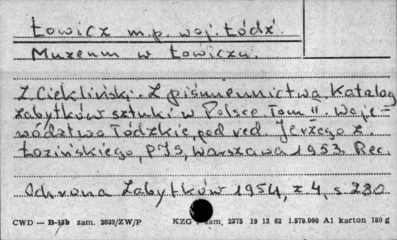 Łowicz m.p. woj. Łódź.
Muzeum w Łowiczu.
Z Ciekliński. Z piśmiennictwa. Katalog
zabytków sztuki w Polsce Tom II. Woje=
wództwo Łódzkie, pod red. Jerzego Z.
Łozińskiego, PIS, Warszawa 1953. Rec.
Ochrona Zabytków 1954, z 4, s 280
CWD — B-15b zam. 2639/ZW/P KZG zam. 2375 19 12 62 1.570.000 A1 karton 180 g